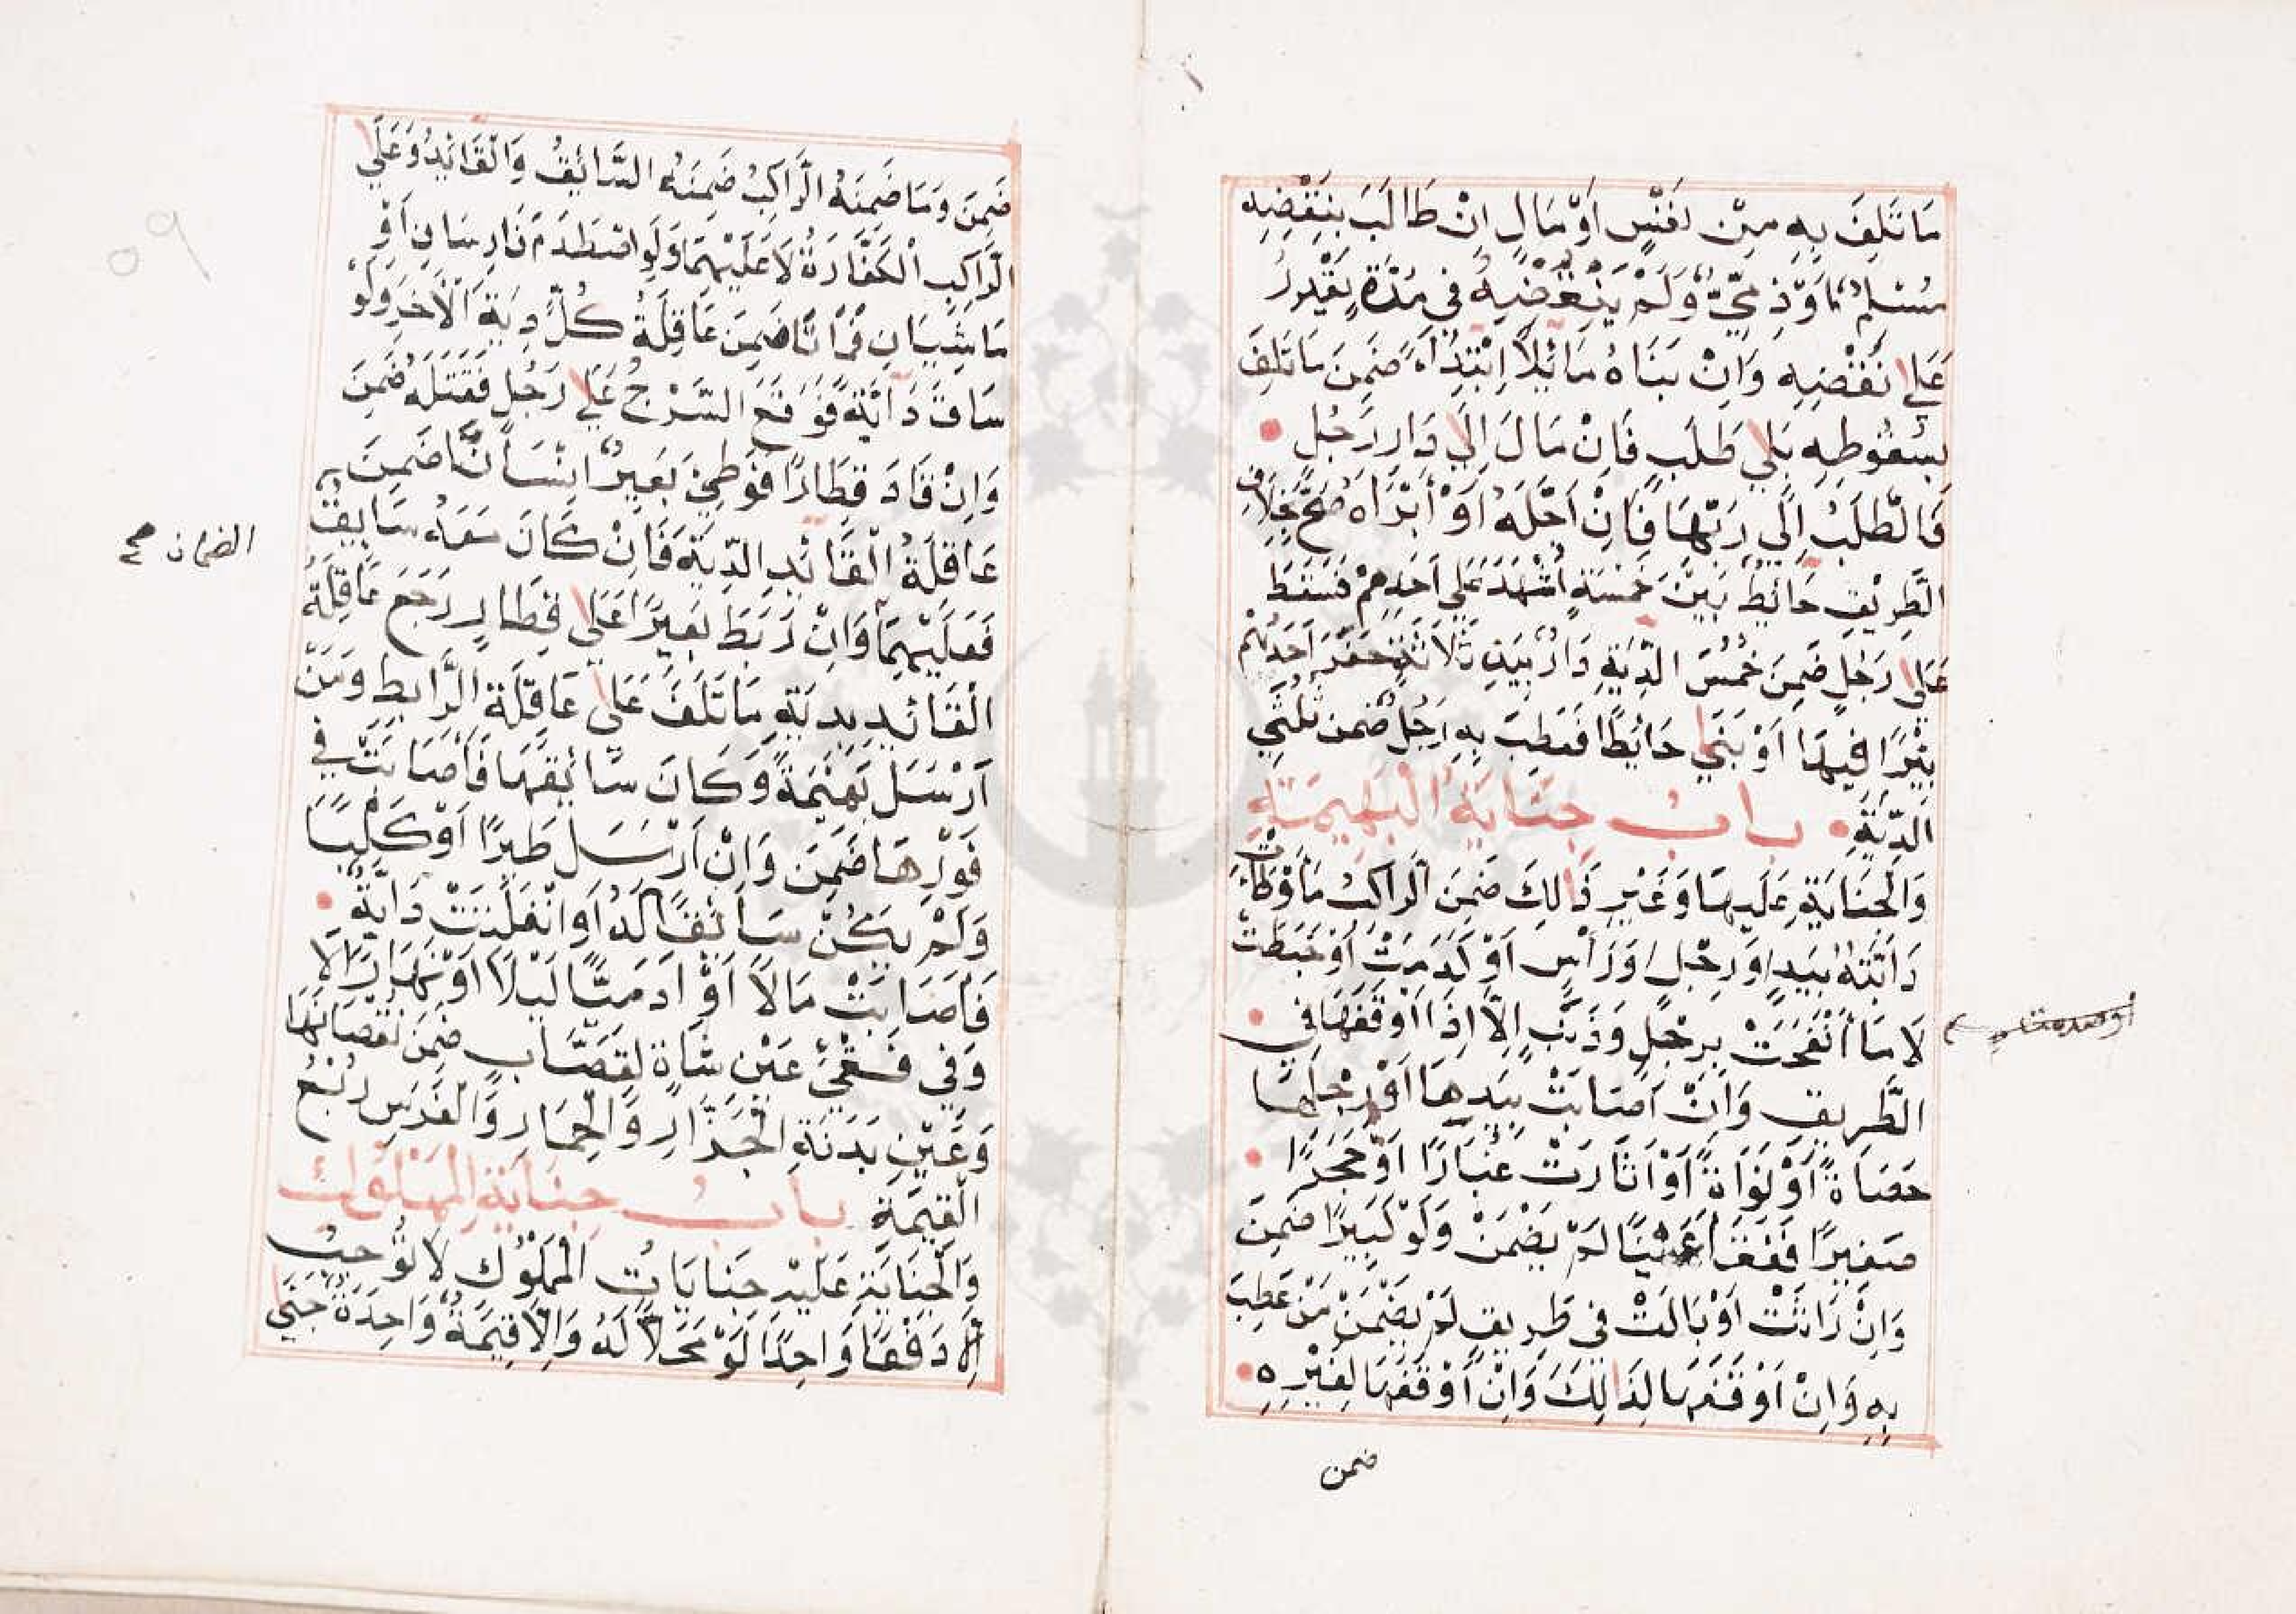 مَا تَلِفَ بِهِ مِنْ نَفْسٍ اَوْ مَالٍ اِنْ طَالَبَ بِنَقْضِهِ
مُسْلِمٌ اَوْ ذِمِّيٌّ وَلَمْ يَنْقُضْهُ فِي مُدَّةٍ يَقْدِرُ
عَلٰى نَقْضِهِ وَاِنْ بَنَاهُ مَائِلًا اِبْتِدَاءً ضَمِنَ مَا تَلِفَ
بِسُقُوطِهِ بَلٰى طَلَبٍ فَاِنْ مَالَ اِلٰى دَارِ رَجُلٍ
فَالطَّلَبُ اِلٰى رَبِّهَا فَاِنْ اَجَّلَهُ اَوْ أَبْرَاَهُ صَحَّ بِخِلَافِ
الطَّرِيْقِ حَائِطٌ بَيْنَ خَمْسَةٍ اُشْهِدَ عَلٰى اَحَدِهِمْ فَسَقَطَ
عَلٰى رَجُلٍ ضَمِنَ خُمُسَ الدِّيَةِ دَارٌ بَيْنَ ثَلَاثَةٍ حَفَرَ اَحَدُهُمْ
بِئْرًا فِيهَا اَوْ بَنٰى حَائِطًا فَعَطِبَ بِهِ رَجُلٌ ضَمِنَ ثُلُثَيِ
الدِّيَةِ بَابُ جِنَايَةُ الْبَهِيمَةِ
وَالْجِنَايَةِ عَلَيهَا وَغَيْرِ ذٰالِكَ ضَمِنَ الرَاكِبُ مَا وَطَأَتْ
دَابَّتُهُ بِيَدٍ اَوْ رِجْلٍ اَوْ رَأْسٍ اَوْ كَدَمَتْ اَوْ خَبَطَتْ
لَا مَا اَنْفَحَتْ بِرِجْلٍ وَذَنَبٍ اِلَّا اِذَا اَوْقَفَهَا فِي
الطَّرِيقِ وَاِنْ اَصَابَتْ بِيَدِهَا اَوْ رِجْلِهَا
حَصَاةً اَوْ نَوَاةً اَوْ اَثَارَتْ غُبَارًا اَوْ حَجَرًا
صَغِيرًا فَفَقَاَ عَيْنًا لَمْ يَضْمَنْ وَلَوْ كَبِيرًا ضَمِنَ
وَاِنْ رَاثَتْ اَوْ بَالَتْ فِي طَرِيقٍ لَمْ يَضْمَنْ مَنْ عَطِبَ
بِهِ وَاِنْ اَوْقَفَهَا لِذٰالِكَ وَاِنْ اَوْقَفَهَا لِغَيْرِهِ
ضمن
ضَمِنَ وَمَا ضَمِنَهُ الرَّاكِبُ ضَمِنَهُ السَّائِقُ وَالْقَائِدُ وَعَلٰى
الرَّاكِبِ الْكَفَّارَةُ لَا عَلَيْهِمَا وَلَوِ اصْطَدَمَ فَارِسَانِ اَوْ
مَاشِيَانِ فَمَاتَا ضَمِنَ عَاقِلَةُ كُلٍّ دِيَةَ الْاٰخَرِ وَلَوْ
سَاقَ دَابَّةً فَوَقَعَ السَّرْجُ عَلٰى رَجُلٍ فَقَتَلَهُ ضَمِنَ
وَاِنْ قَادَ قِطَارًا فَوَطِئَ بَعِيرٌ اِنْسَانًا ضَمِنَ
عَاقِلَةُ الْقَائِدِ الدِّيَةَ فَاِنْ كَانَ مَعَهُ سَائِقٌ
فَعَلَيْهِمَا وَاِنْ رَبَطَ بَعِيرًا عَلٰى قِطَارٍ رَجَعَ عَاقِلَةُ
الْقَائِدِ بِدِيَةِ مَا تَلَفَ عَلٰى عَاقِلَةِ الرَّابِطِ وَمَنْ
اَرْسَلَ بَهِيْمَةً وَكَانَ سَائِقَهَا فَأَصَابَتْ فِي
فَوْرِهَا ضَمِنَ وَاِنْ اَرْسَلَ طَيرًا اَوْ كَلْبًا
وَلَمْ يَكُنْ سَائِقًا لَهُ اَوِ انْفَلَتَتْ دَابَّةٌ
فَاَصَابَتْ مَالًا اَوْ اٰدَمِيًّا لَيْلًا اَوْ نَهَارًا لَا
وَفِي فَقْئِ عَيْنِ شَاةٍ لِقَصَّابٍ ضَمِنَ نُقْصَانَهَا
وَعَيْنِ بَدَنَةِ الْجَزَّارِ وَالْحِمَارِ وَالْفَرَسِ رُبُعُ
الْقِيمَةِ بَابُ جِنَايَةِ الْمَمْلُوكِ
وَالْجِنَايَةِ عَلَيْهِ جِنَايَاتُ الْمَمْلُوْكِ لَا تُوْجِبُ
اِلَّا دَفْعًا وَاحِدًا لَوْ مَحَلًّا لَهُ وَاِلَّا قِيمَةً وَاحِدَةً جَنٰى
الضمان صح
٥٩